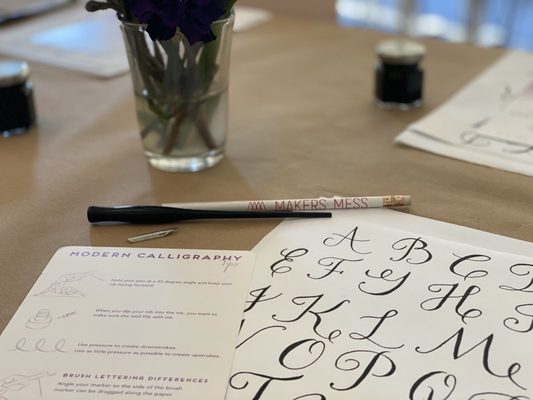 MAKERS MESS
MODERN CALLIGRAPHY
tips
Hold your pen at a 45 degree angle and keep your
nib facing forward.
When you dip your nib into the ink, you want to
make sure the well fills with ink.
Use pressure to create downstrokes.
Use as little pressure as possible to create upstrokes.
BRUSH LETTERING DIFFERENCES
Angle your marker so the side of the brush
marker can be dragged along the paper.
A B C D
E F G H I
J K L M
N O P Q
T